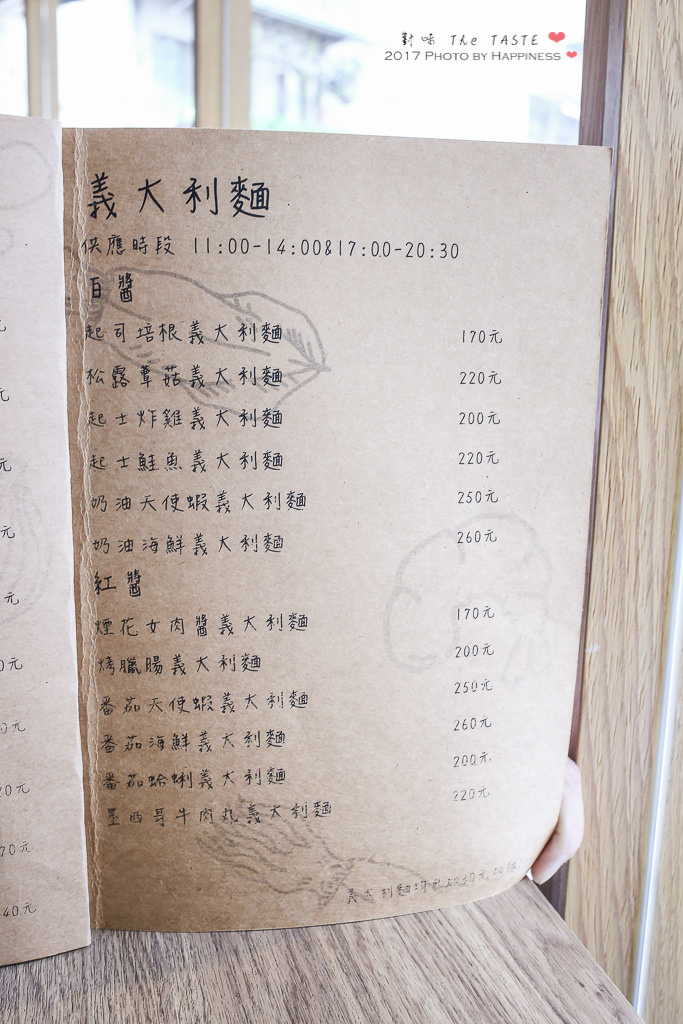 對味 The TASTE
2017 PHOTO BY HAPPINESS
義大利麵
供應時段 11:00-14:00&17:00-20:30
白醬
起司培根義大利麵 170元
松露蕈菇義大利麵 220元
起士炸雞義大利麵 200元
起士鮭魚義大利麵 220元
奶油天使蝦義大利麵 250元
奶油海鮮義大利麵 260元
紅醬
煙花女肉醬義大利麵 170元
烤臘腸義大利麵 200元
番茄天使蝦義大利麵 250元
番茄海鮮義大利麵 260元
番茄蛤蜊義大利麵 200元
墨西哥牛肉丸義大利麵 220元
義大利麵
元
元
元
元
元
0元
0元
20元
70元
40元